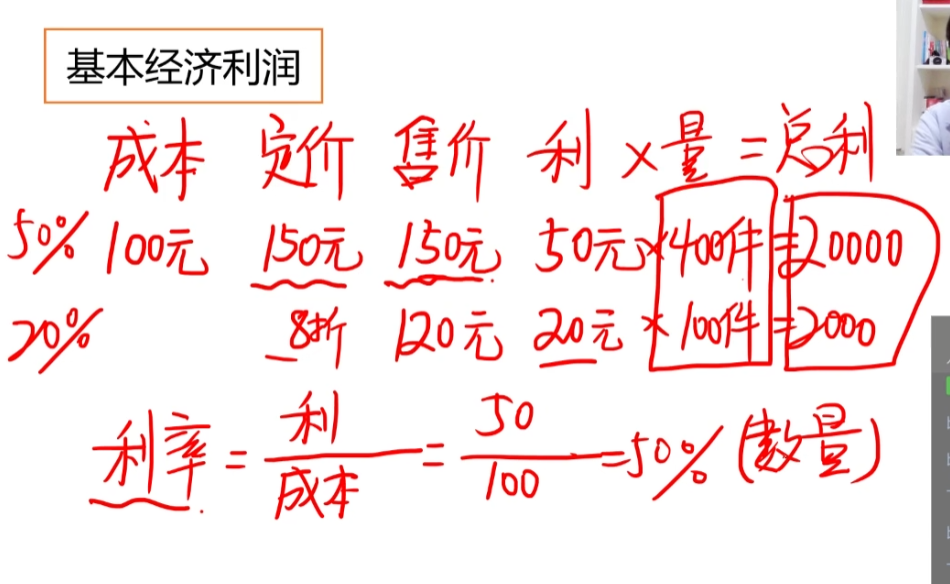 基本经济利润
成本 定价 售价 利 × 量 = 总利
50% 100元 150元 150元 50元 × 400件 = 20000
20% 8折 120元 20元 × 100件 = 2000
利率 = 利/成本 = 50/100 = 50% (数量)